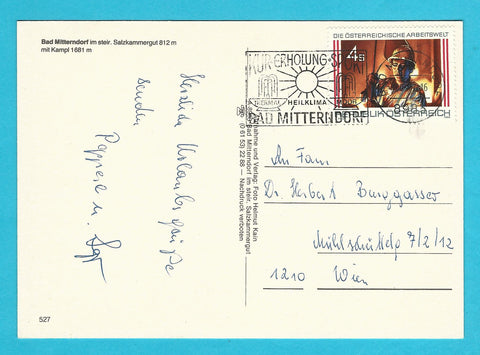 Bad Mitterndorf im steir. Salzkammergut 812 m
mit Kampl 1681 m
Herzliche Urlaubsgrüße
senden
527
Aufnahme und Verlag: Foto Helmut Kain
Bad Mitterndorf im steir. Salzkammergut
(0 61 53) 22 88 — Nachdruck verboten
KUR·ERHOLUNG·SPORT
THERMAL HEILKLIMA MOOR
BAD MITTERNDORF
DIE ÖSTERREICHISCHE ARBEITSWELT
4 S
REPUBLIK ÖSTERREICH
An Fam.
Dr. Herbert Burggasser
7/2/12
1210 Wien